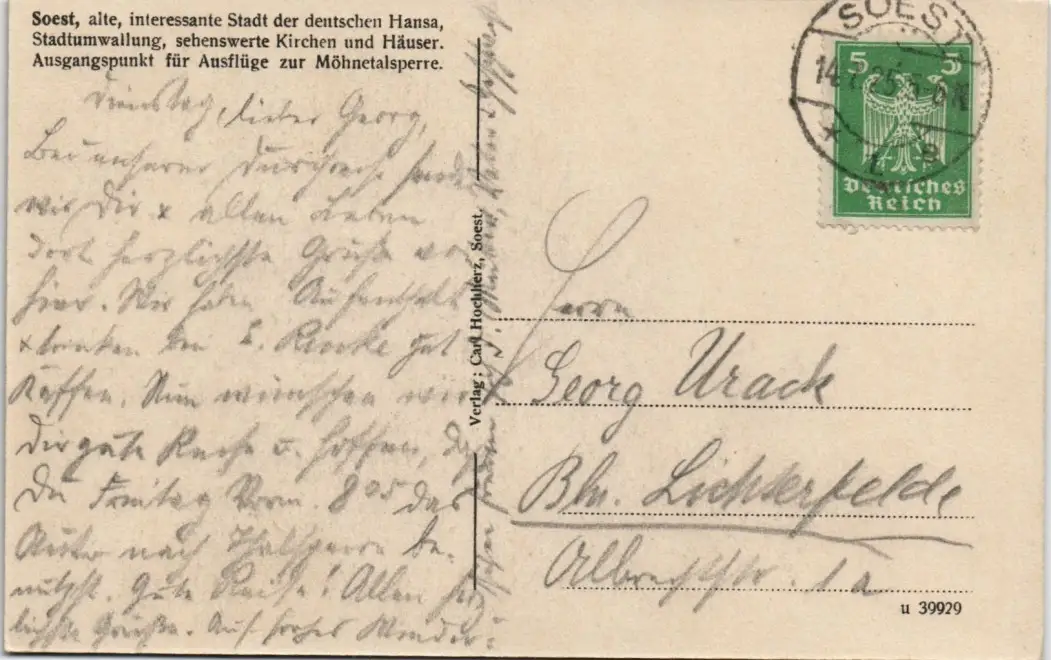 Soest, alte, interessante Stadt der deutschen Hansa,
Stadtumwallung, sehenswerte Kirchen und Häuser.
Ausgangspunkt für Ausflüge zur Möhnetalsperre.
Dienstag, lieber Georg,
Bei unserer Durchreise senden
wir Dir x allen Lieben
dort herzlichste Grüße von
hier. Wir haben Aufenthalt
x trinken bei gut
Kaffee. Nun wünschen wir
Dir gute Reise u. hoffen, daß
Du Freitag Vorm. 8⁰⁵ das
Auto nach Thalsperre be-
nutzst. Gute Reise! Allen herz-
lichste Grüße. Auf frohes Wieder-
Verlag: Carl Hochherz, Soest.
SOEST
14.7.25. 5-6 N
* L e
5 5
Deutsches
Reich
Herrn
Georg Urack
Bln. Lichterfelde
Albrechtstr. 1a
u 39929